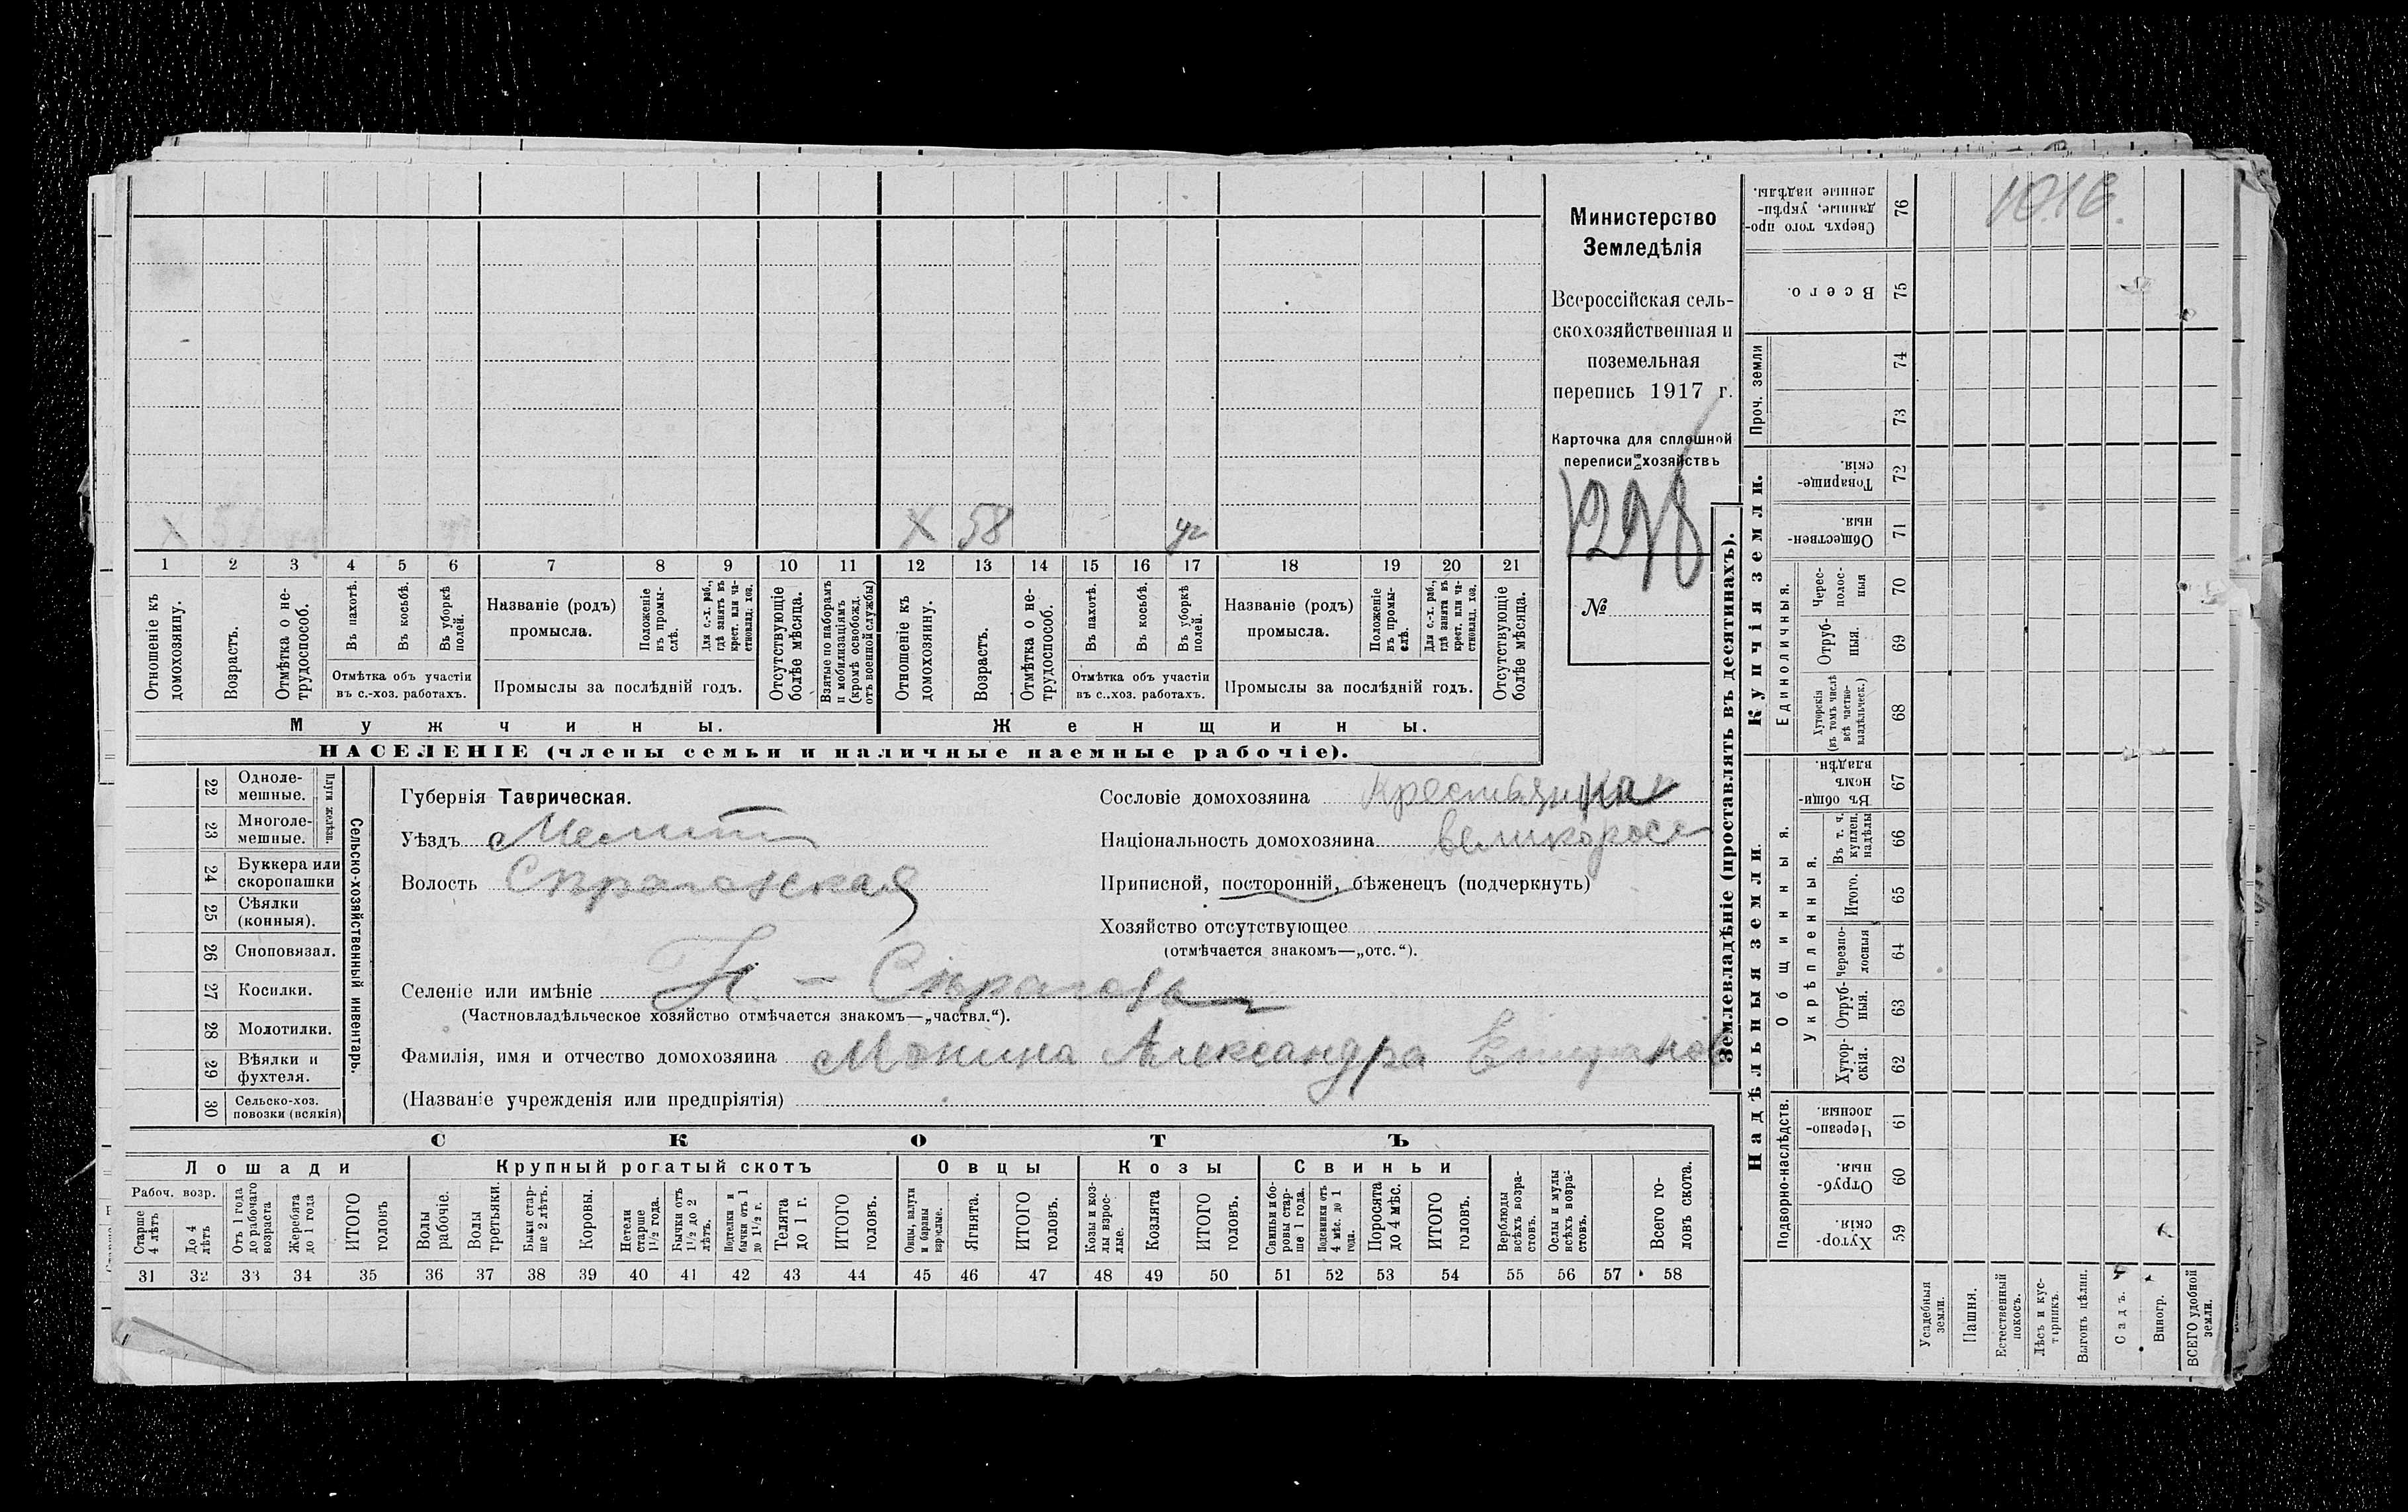 Министерство
Земледѣлія
Всероссійская сель-
скохозяйственная и
поземельная
перепись 1917 г.
Карточка для сплошной
переписи хозяйствъ
1298
№
Х 58 уч
1 2 3 4 5 6 7 8 9 10 11 12 13 14 15 16 17 18 19 20 21
Отношеніе къ домохозяину.
Возрастъ.
Отмѣтка о не-трудоспособ.
Въ пахотѣ.
Въ косьбѣ.
Въ уборкѣ полей.
Отмѣтка объ участіи
въ с.-хоз. работахъ.
Названіе (родъ)
промысла.
Положеніе въ промы-слѣ.
Для с.-х. раб., гдѣ занятъ въ крест. или ча-стновлад. хоз.
Промыслы за послѣдній годъ.
Отсутствующіе болѣе мѣсяца.
Взятые по наборамъ и мобилизаціямъ (кромѣ освобожд. отъ военной службы)
Отношеніе къ домохозяину.
Возрастъ.
Отмѣтка о не-трудоспособ.
Въ пахотѣ.
Въ косьбѣ.
Въ уборкѣ полей.
Отмѣтка объ участіи
въ с.-хоз. работахъ.
Названіе (родъ)
промысла.
Положеніе въ промы-слѣ.
Для с.-х. раб., гдѣ занята въ крест. или ча-стновлад. хоз.
Промыслы за послѣдній годъ.
Отсутствующіе болѣе мѣсяца.
Мужчины. Женщины.
НАСЕЛЕНІЕ (члены семьи и наличные наемные рабочіе).
Сельско-хозяйственный инвентарь.
Плуги желѣз.
22 Одноле-мешные.
23 Многоле-мешные.
24 Буккера или скоропашки
25 Сѣялки (конныя).
26 Сноповязал.
27 Косилки.
28 Молотилки.
29 Вѣялки и фухтеля.
30 Сельско-хоз. повозки (всякія)
Губернія Таврическая.
Уѣздъ Мелит
Волость
Селеніе или имѣніе
(Частновладѣльческое хозяйство отмѣчается знакомъ—„частвл.“).
Фамилія, имя и отчество домохозяина Монина Александра
(Названіе учрежденія или предпріятія)
Сословіе домохозяина крестьянка
Національность домохозяина великоросс
Приписной, посторонній, бѣженецъ (подчеркнуть)
Хозяйство отсутствующее
(отмѣчается знакомъ—„отс.“).
СКОТЪ
Лошади Крупный рогатый скотъ Овцы Козы Свиньи
Рабоч. возр.
Старше 4 лѣтъ
До 4 лѣтъ
Отъ 1 года до рабочаго возраста
Жеребята до 1 года
ИТОГО головъ
Волы рабочіе.
Волы третьяки.
Быки стар-ше 2 лѣтъ.
Коровы.
Нетели старше 1 1/2 года.
Бычки отъ 1 1/2 до 2 лѣтъ.
Подтелки и бычки отъ 1 до 1 1/2 г.
Телята до 1 г.
ИТОГО головъ.
Овцы, валухи и бараны взрослые.
Ягнята.
ИТОГО головъ.
Козы и коз-лы взрос-лые.
Козлята
ИТОГО головъ.
Свиньи и бо-ровы стар-ше 1 года.
Подсвинки отъ 4 мѣс. до 1 года.
Поросята до 4 мѣс.
ИТОГО головъ.
Верблюды всѣхъ возра-стовъ.
Ослы и мулы всѣхъ возра-стовъ.
Всего го-ловъ скота.
31 32 33 34 35 36 37 38 39 40 41 42 43 44 45 46 47 48 49 50 51 52 53 54 55 56 57 58
Землевладѣніе (проставлять въ десятинахъ).
Купчія земли.
Проч. земли
Надѣльныя земли.
Сверхъ того про-данные, укрѣп-ленные надѣлы. 76
Всего. 75
74
73
Товарище-скія. 72
Обществен-ныя. 71
Единоличныя.
Черес-полос-ныя 70
Отруб-ныя. 69
Хуторскія (въ томъ числѣ всѣ частно-владѣльческ.) 68
Общинныя.
Въ общи-номъ владѣн. 67
Укрѣпленныя.
Въ т. ч. куплен. надѣлы 66
Итого. 65
Черезпо-лосныя 64
Отруб-ныя. 63
Хутор-скія. 62
Подворно-наслѣдств.
Черезпо-лосныя. 61
Отруб-ныя. 60
Хутор-скія. 59
Усадебныя земли.
Пашня.
Естественный покосъ.
Лѣсъ и кус-тарникъ.
Выгонъ цѣлин.
Садъ.
Виногр.
ВСЕГО удобной земли.